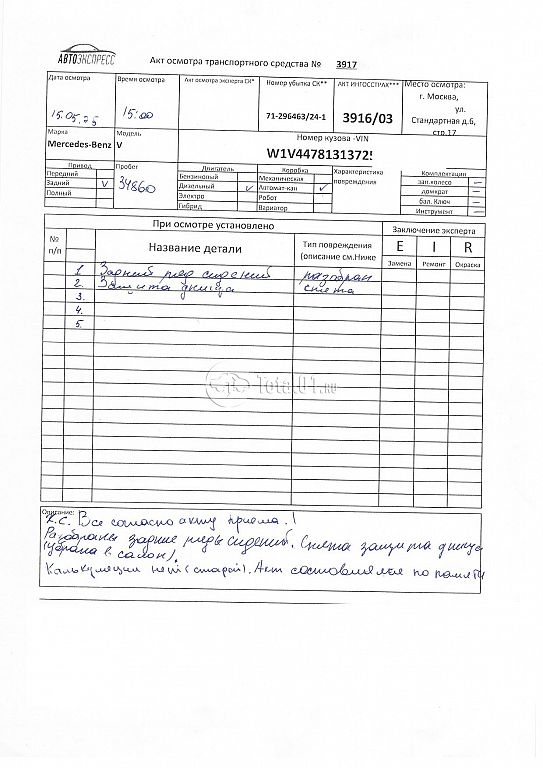 АВТОЭКСПРЕСС
Акт осмотра транспортного средства № 3917
Дата осмотра
15.05.25
Время осмотра
15:00
Акт осмотра эксперта СК*
Номер убытка СК**
71-296463/24-1
АКТ ИНГОССТРАХ***
3916/03
Место осмотра:
г. Москва,
ул.
Стандартная д.6,
стр.17
Марка
Mercedes-Benz
Модель
V
Номер кузова -VIN
W1V4478131372
Привод
Передний
Задний V
Полный
Пробег
34860
Двигатель
Бензиновый
Дизельный V
Электро
Гибрид
Коробка
Механическая
Автомат-кая V
Робот
Вариатор
Характеристика
повреждения
Комплектация
зап.колесо —
домкрат —
бал. Ключ —
Инструмент —
При осмотре установлено
Заключение эксперта
№
п/п
Название детали
Тип повреждения
(описание см.Ниже
E I R
Замена Ремонт Окраска
1. Задний ряд сидений разобран
2. Защита днища снята
3.
4.
5.
Total01.ru
Описание:
К.С. Все согласно акту приема.!
Разобраны задние ряды сидений. Снята защита днища
(убрана в салон).
Калькуляции нет (старой). Акт составлялся по памяти